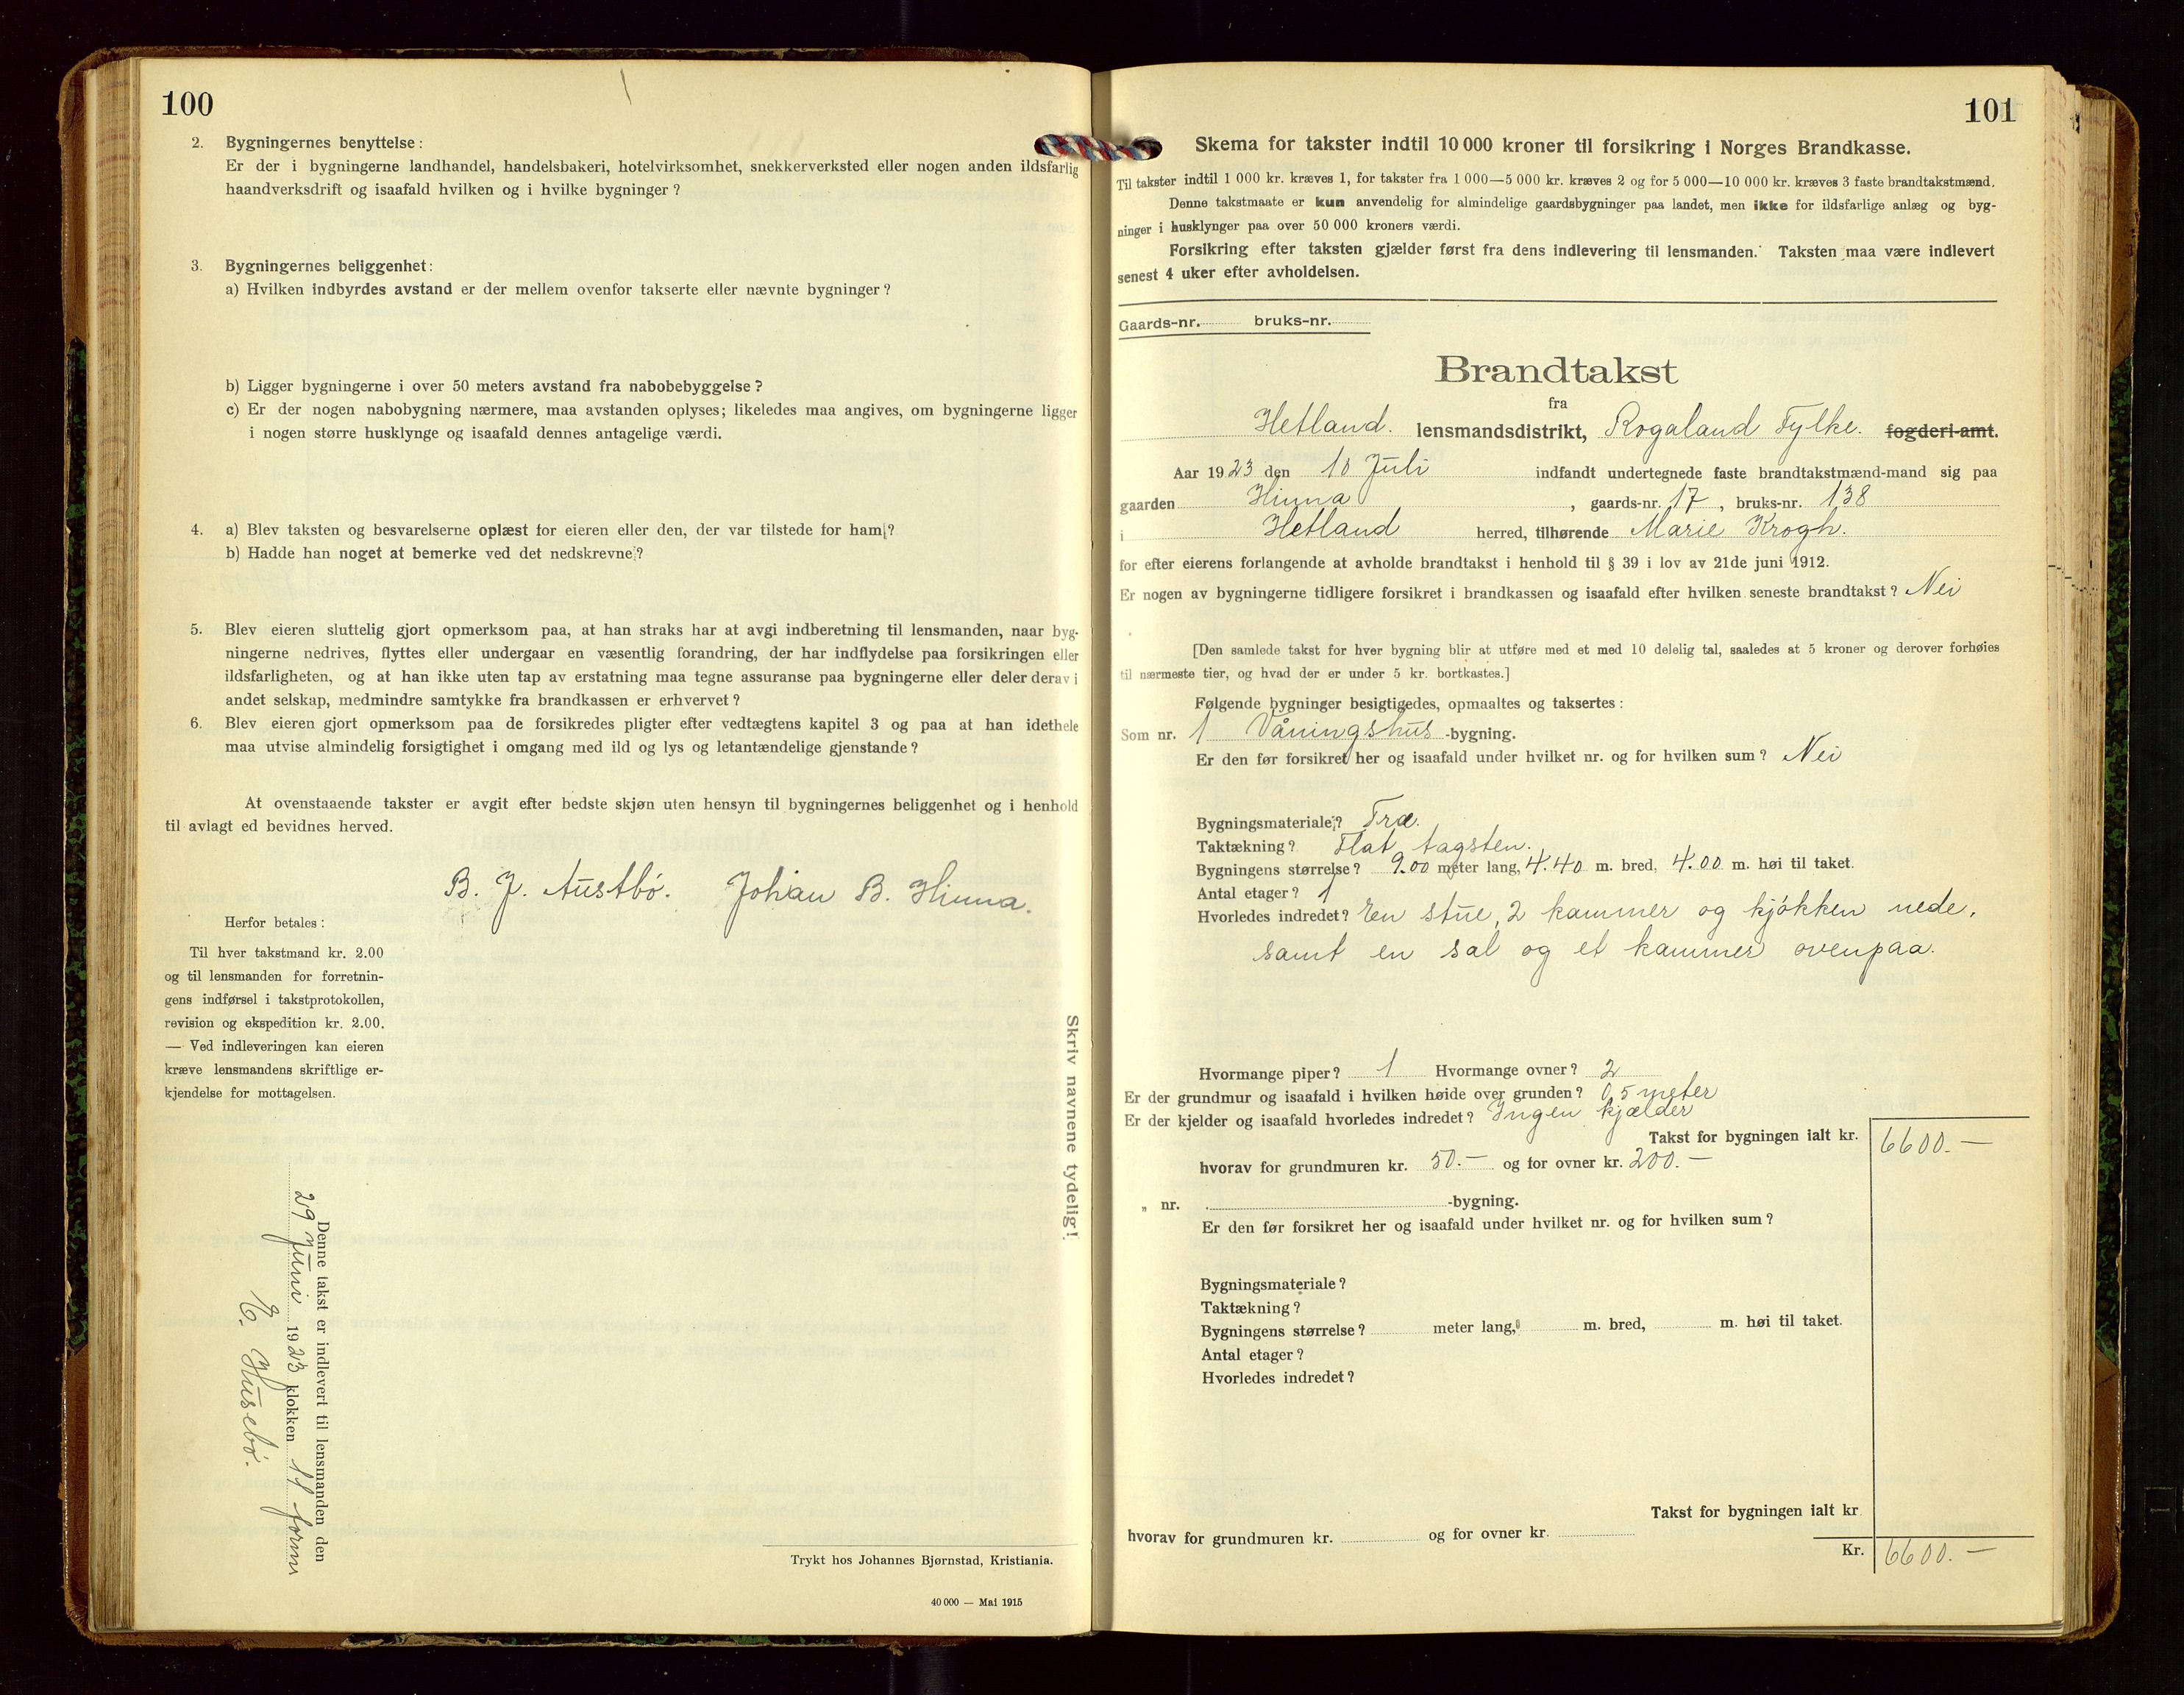 100
2. Bygningernes benyttelse:
Er der i bygningerne landhandel, handelsbakeri, hotelvirksomhet, snekkerverksted eller nogen anden ildsfarlig
haandverksdrift og isaafald hvilken og i hvilke bygninger?
3. Bygningernes beliggenhet:
a) Hvilken indbyrdes avstand er der mellem ovenfor takserte eller nævnte bygninger?
b) Ligger bygningerne i over 50 meters avstand fra nabobebyggelse?
c) Er der nogen nabobygning nærmere, maa avstanden oplyses; likeledes maa angives, om bygningerne ligger
i nogen større husklynge og isaafald dennes antagelige værdi.
4. a) Blev taksten og besvarelserne oplæst for eieren eller den, der var tilstede for ham?
b) Hadde han noget at bemerke ved det nedskrevne?
5. Blev eieren sluttelig gjort opmerksom paa, at han straks har at avgi indberetning til lensmanden, naar byg-
ningerne nedrives, flyttes eller undergaar en væsentlig forandring, der har indflydelse paa forsikringen eller
ildsfarligheten, og at han ikke uten tap av erstatning maa tegne assuranse paa bygningerne eller deler derav i
andet selskap, medmindre samtykke fra brandkassen er erhvervet?
6. Blev eieren gjort opmerksom paa de forsikredes pligter efter vedtægtens kapitel 3 og paa at han idethele
maa utvise almindelig forsigtighet i omgang med ild og lys og letantændelige gjenstande?
At ovenstaaende takster er avgit efter bedste skjøn uten hensyn til bygningernes beliggenhet og i henhold
til avlagt ed bevidnes herved.
B. J. Austbø. Johan B. Hinna.
Herfor betales:
Til hver takstmand kr. 2.00
og til lensmanden for forretnin-
gens indførsel i takstprotokollen,
revision og ekspedition kr. 2.00.
— Ved indleveringen kan eieren
kræve lensmandens skriftlige er-
kjendelse for mottagelsen.
Skriv navnene tydelig!
Denne takst er indlevert til lensmanden den
29 Juni 1923 klokken 11 form
E. Husebø.
Trykt hos Johannes Bjørnstad, Kristiania.
40 000 — Mai 1915
101
Skema for takster indtil 10 000 kroner til forsikring i Norges Brandkasse.
Til takster indtil 1 000 kr. kræves 1, for takster fra 1 000—5 000 kr. kræves 2 og for 5 000—10 000 kr. kræves 3 faste brandtakstmænd.
Denne takstmaate er kun anvendelig for almindelige gaardsbygninger paa landet, men ikke for ildsfarlige anlæg og byg-
ninger i husklynger paa over 50 000 kroners værdi.
Forsikring efter taksten gjælder først fra dens indlevering til lensmanden. Taksten maa være indlevert
senest 4 uker efter avholdelsen.
Gaards-nr. bruks-nr.
Brandtakst
fra
Hetland. lensmandsdistrikt, Rogaland Fylke. fogderi-amt.
Aar 1923 den 10 Juli indfandt undertegnede faste brandtakstmænd-mand sig paa
gaarden Hinna, gaards-nr. 17, bruks-nr. 138
i Hetland herred, tilhørende Marie Krogh.
for efter eierens forlangende at avholde brandtakst i henhold til § 39 i lov av 21de juni 1912.
Er nogen av bygningerne tidligere forsikret i brandkassen og isaafald efter hvilken seneste brandtakst? Nei
[Den samlede takst for hver bygning blir at utføre med et med 10 delelig tal, saaledes at 5 kroner og derover forhøies
til nærmeste tier, og hvad der er under 5 kr. bortkastes.]
Følgende bygninger besigtigedes, opmaaltes og taksertes:
Som nr. 1 Våningshus -bygning.
Er den før forsikret her og isaafald under hvilket nr. og for hvilken sum? Nei
Bygningsmateriale? Træ.
Taktækning? Flat tagsten.
Bygningens størrelse? 9.00 meter lang, 4.40 m. bred, 4.00 m. høi til taket.
Antal etager? 1
Hvorledes indredet? En stue, 2 kammer og kjøkken nede,
samt en sal og et kammer ovenpaa.
Hvormange piper? 1 Hvormange ovner? 2
Er der grundmur og isaafald i hvilken høide over grunden? 0,5 meter
Er der kjelder og isaafald hvorledes indredet? Ingen kjælder
Takst for bygningen ialt kr. 6600.—
hvorav for grundmuren kr. 50.— og for ovner kr. 200.—
„ nr. -bygning.
Er den før forsikret her og isaafald under hvilket nr. og for hvilken sum?
Bygningsmateriale?
Taktækning?
Bygningens størrelse? meter lang, m. bred, m. høi til taket.
Antal etager?
Hvorledes indredet?
Takst for bygningen ialt kr
hvorav for grundmuren kr. og for ovner kr.
Kr. 6600.—